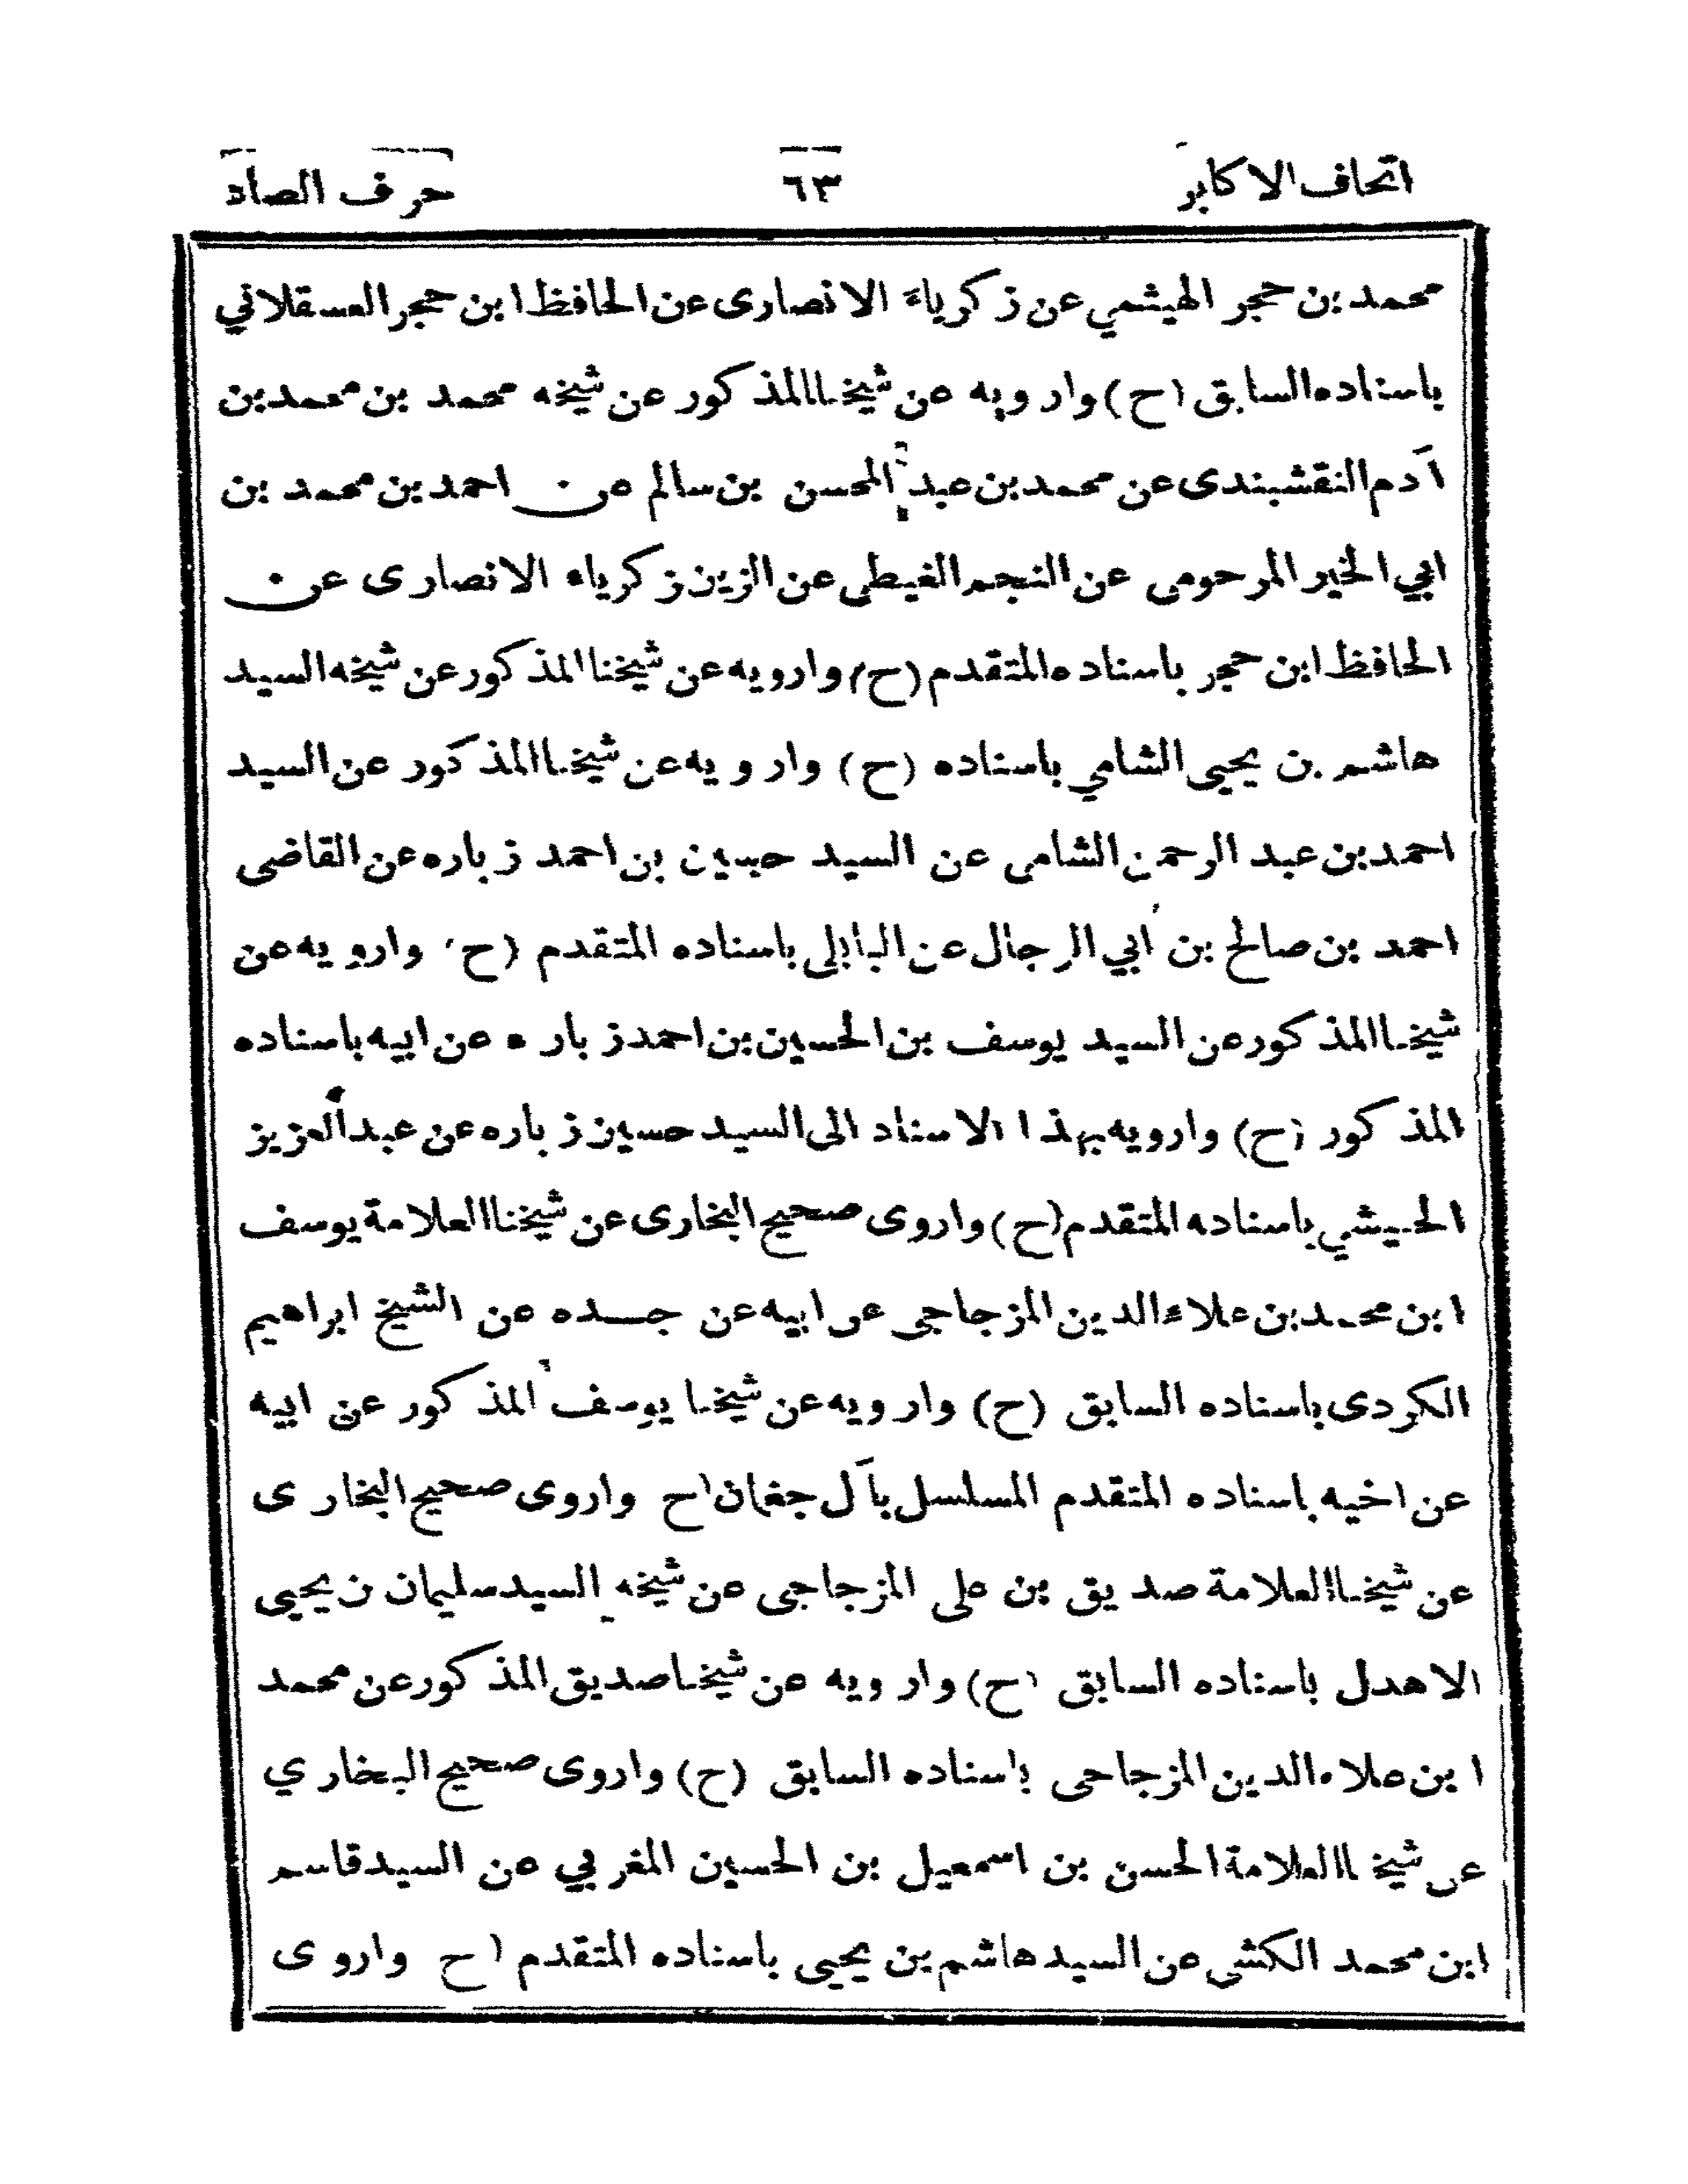 اتحاف الاكابر ٦٣ حرف الصاد
محمد بن حجر الهيثمي عن زكرياء الانصارى عن الحافظ ابن حجر العسقلاني
باسناده السابق (ح) وارويه عن شيخنا المذكور عن شيخه محمد بن محمد بن
آدم النقشبندى عن محمد بن عبد المحسن بن سالم عن احمد بن محمد بن
ابي الخير المرحومى عن النجم الغيطى عن الزين زكرياء الانصارى عن
الحافظ ابن حجر باسناده المتقدم (ح) وارويه عن شيخنا المذكور عن شيخه السيد
هاشم بن يحيى الشامي باسناده (ح) وارويه عن شيخنا المذكور عن السيد
احمد بن عبد الرحمن الشامى عن السيد حسين بن احمد زباره عن القاضى
احمد بن صالح بن أبي الرجال عن البابلى باسناده المتقدم (ح) وارويه عن
شيخنا المذكور عن السيد يوسف بن الحسين بن احمد زباره عن ابيه باسناده
المذكور (ح) وارويه بهذا الاسناد الى السيد حسين زباره عن عبد العزيز
الحبيشي باسناده المتقدم (ح) واروى صحيح البخارى عن شيخنا العلامة يوسف
ابن محمد بن علاء الدين المزجاجى عن ابيه عن جده عن الشيخ ابراهيم
الكردى باسناده السابق (ح) وارويه عن شيخنا يوسف المذكور عن ابيه
عن اخيه باسناده المتقدم المسلسل بآل جغمان (ح واروى صحيح البخارى
عن شيخنا العلامة صديق بن على المزجاجى عن شيخه السيد سليمان بن يحيى
الاهدل باسناده السابق (ح) وارويه عن شيخنا صديق المذكور عن محمد
ابن علاء الدين المزجاجى باسناده السابق (ح) واروى صحيح البخاري
عن شيخنا العلامة الحسن بن اسمعيل بن الحسين المغربي عن السيد قاسم
ابن محمد الكبشي عن السيد هاشم بن يحيى باسناده المتقدم (ح واروى